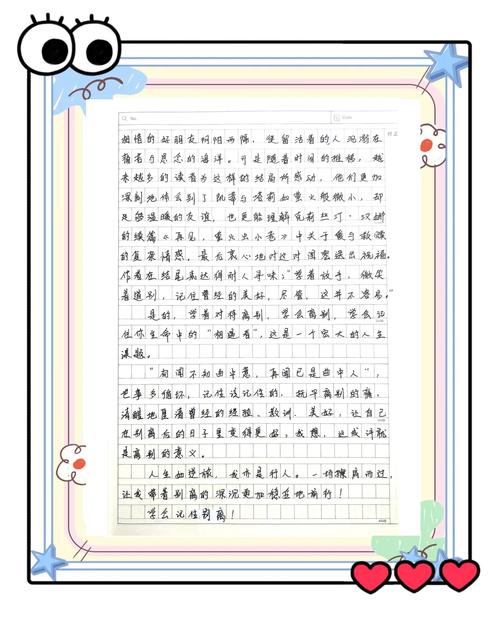 相惜的好朋友阴阳两隔，使留活着的人沉溺在
痛苦与思念的海洋。可是随着时间的推移，越
来越多的读者为这样的结局所感动，他们更加
深刻地体会到了凯蒂与洛莉如萤火般微小，却
足够温暖的友谊，也更能理解克莉丝汀·汉娜
的续篇《再见，萤火虫小巷》中关于爱与救赎
的复杂情感，最后衷心地对这对闺蜜送出祝福。
作者在结尾表达得耐人寻味："学着放手，微笑
着道别，记住曾经的美好，尽管，这并不容易。"
是的，学着对待离别，学会离别，学会记
住你生命中的"相遇者"，这是一个宏大的人生
课题。
"初闻不知曲中意，再闻已是曲中人"，
也事多
记住该记住的，抚平离别的痛，
清醒地复盘曾经的经验、教训、美好，让自己
在别离后的日子里变得更好，我想，这或许就
是离别的意义。
人生如逆旅，我亦是行人。一切擦肩而过，
让我带着别离的深沉更加稳
地前行！
学会记住别离！